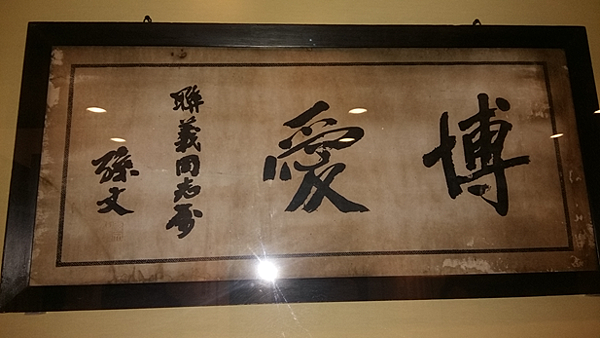 博愛
聯義同志屬
孫文